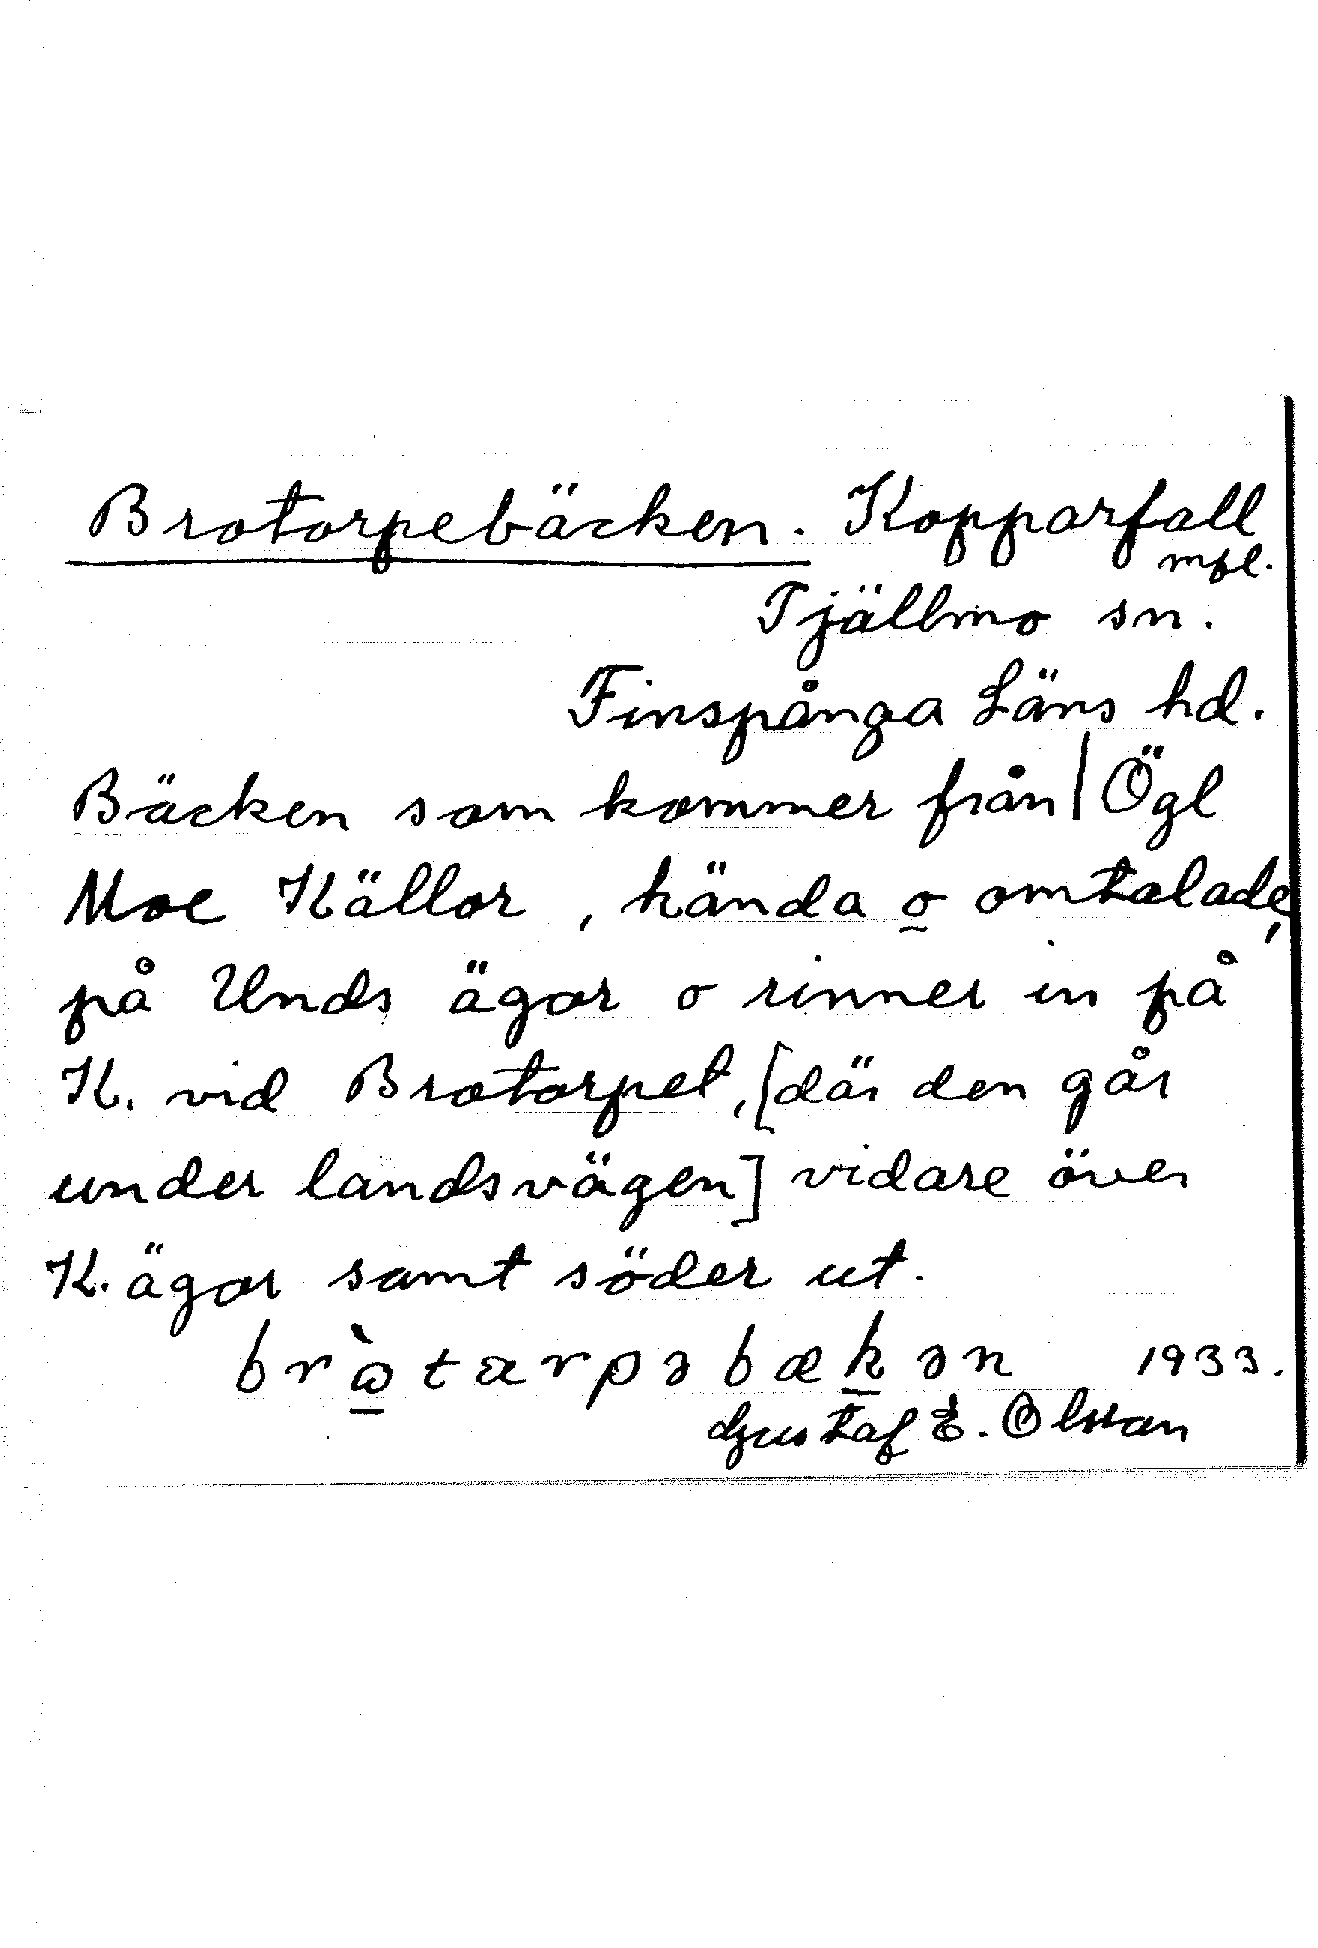 Brotorpebäcken. Kopparfall
mfl.
Tjällmo sn.
Finspånga Läns hd.
Bäcken som kommer från | Ögl
Moe Källor, kända o omtalade,
på Unds ägor o rinner in på
K. vid Brotorpet, [där den går
under landsvägen] vidare över
K. ägor samt söder ut.
bròtarpəbækən 1933.
Gustaf E. Olsson